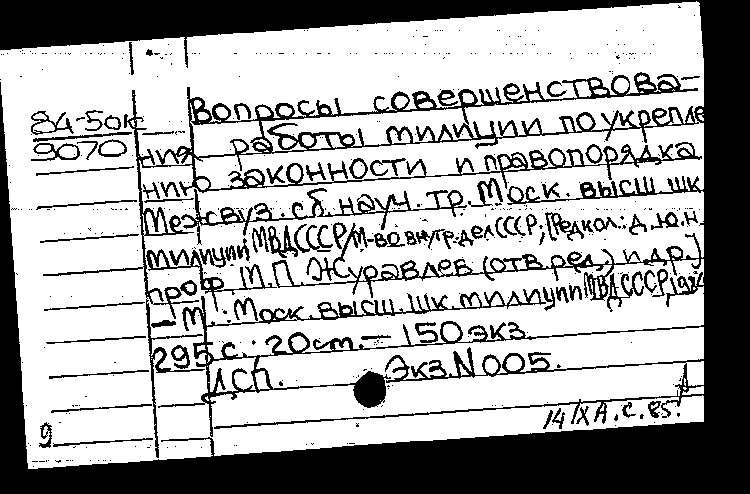 84-5ок
9070
Вопросы совершенствова-
ния работы милиции по укрепле
нию законности и правопорядка
Межвуз. сб. науч. тр. Моск. высш. шк
милиции МВД СССР/М-во внутр. дел СССР; [Редкол.: д. ю. н
проф М.П. Журавлев (отв. ред.) и др.]
– М.: Моск. высш. шк. милиции МВД СССР, 1984
295 с.; 20 см. – 150 экз.
ДСП. Экз. N 005.
14/IX А. с. 85г
9